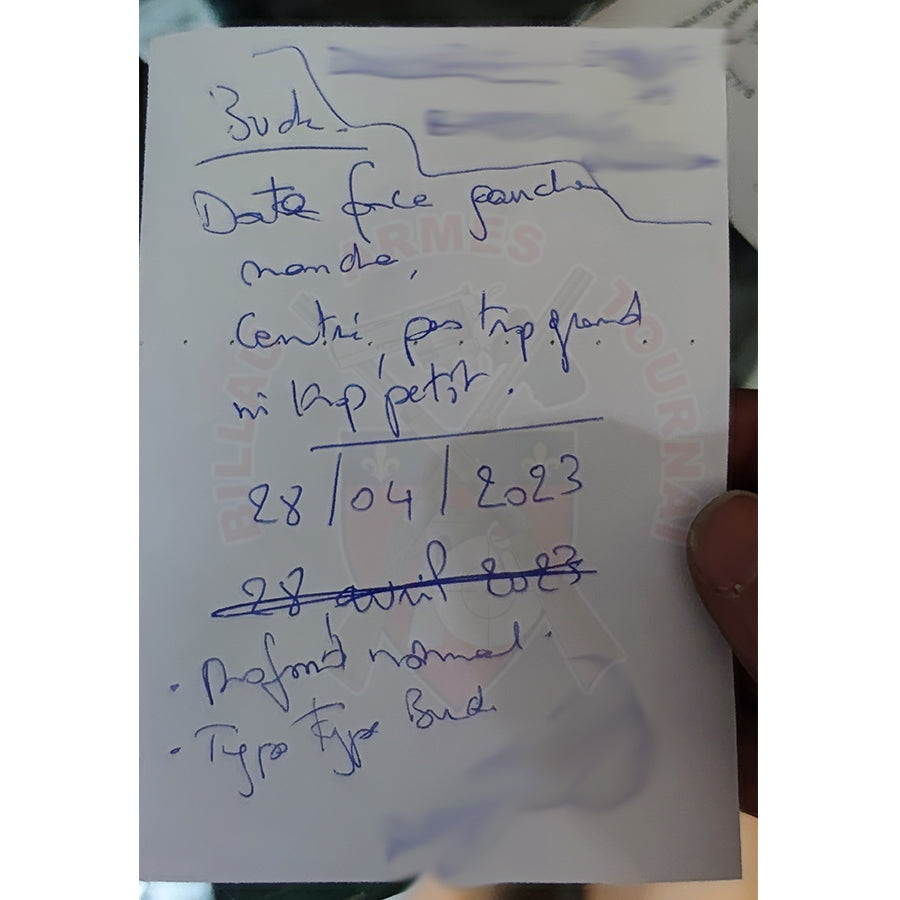 Buck.
Date face gauche
manche,
Centré, pas trop grand
ni trop petit.
28/04/2023
28 avril 2023
. Profond normal.
. Typo Type Buck
BILLAU ARMES TOURNAI